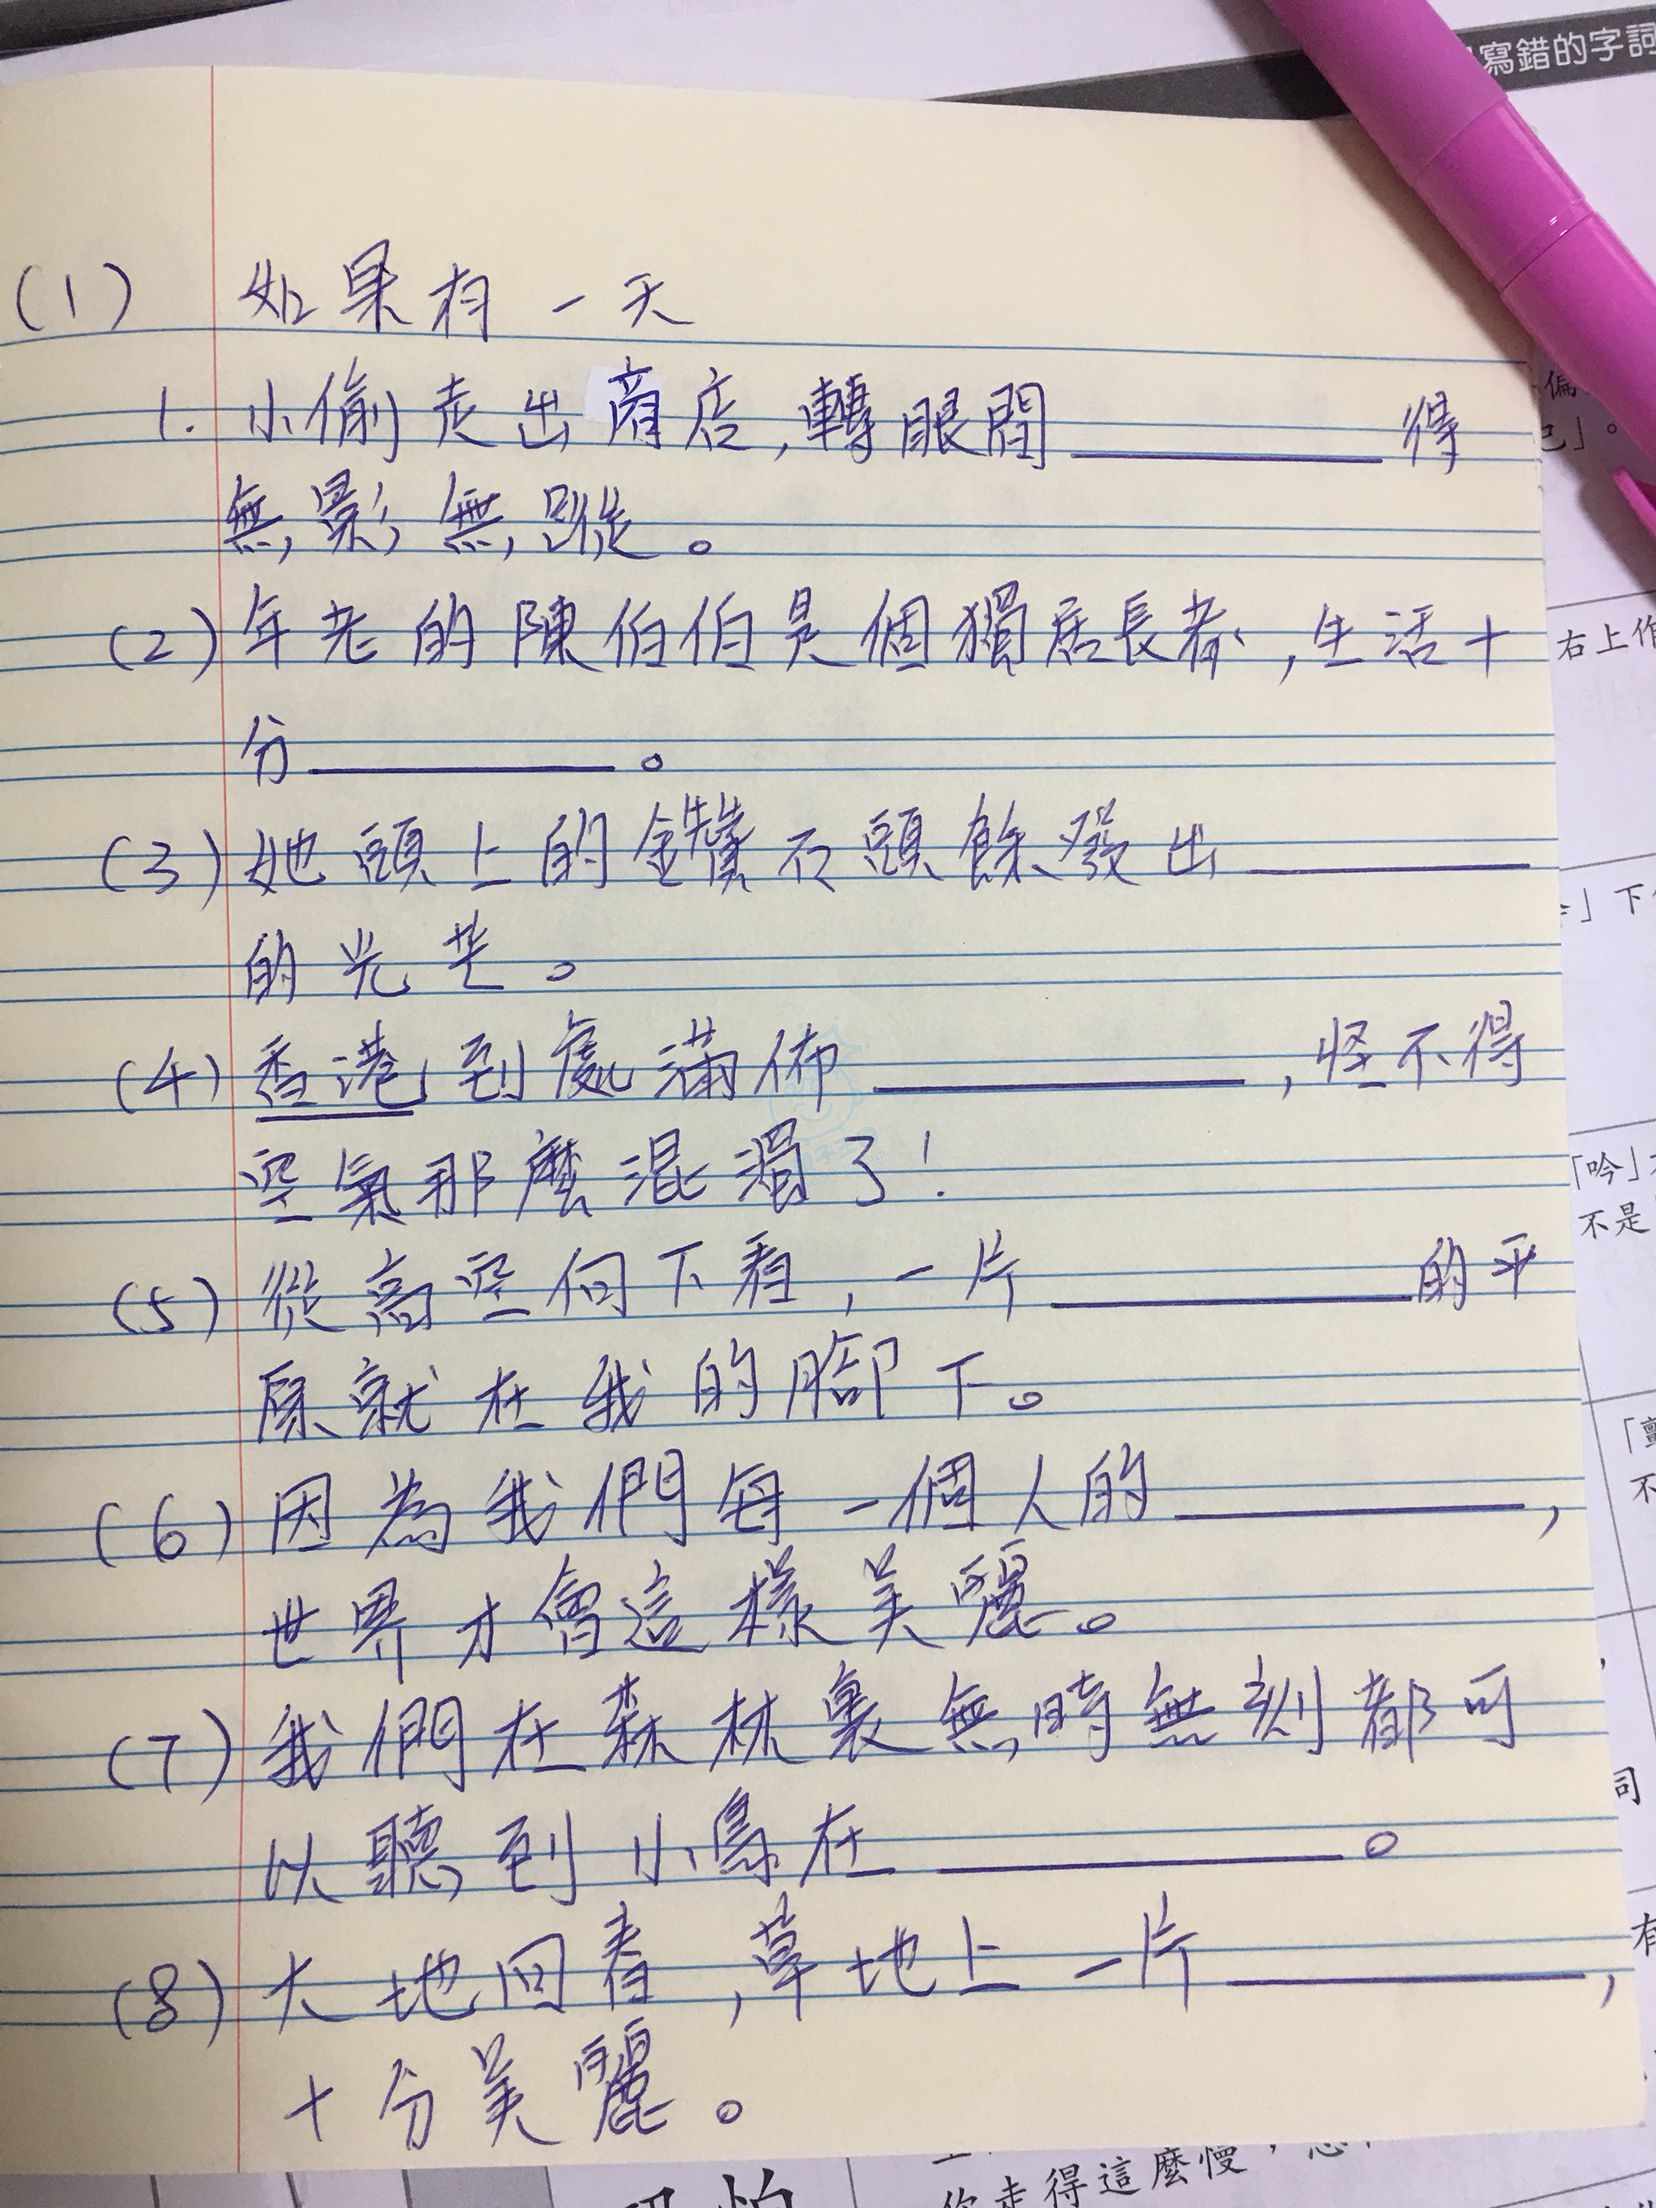 寫錯的字詞
(1) 如果有一天
1. 小偷走出商店,轉眼間________得
無影無蹤。
(2) 年老的陳伯伯是個獨居長者,生活十
分________。
(3) 她頭上的鑽石頭飾發出________
的光芒。
(4) 香港到處滿佈________,怪不得
空氣那麼混濁了!
(5) 從高空向下看,一片________的平
原就在我的腳下。
(6) 因為我們每一個人的________,
世界才會這樣美麗。
(7) 我們在森林裏無時無刻都可
以聽到小鳥在________。
(8) 大地回春,草地上一片________,
十分美麗。
偏
己」。
右上作
」下
「吟」
不是
不
詞
有
你走得這麼慢,
怕